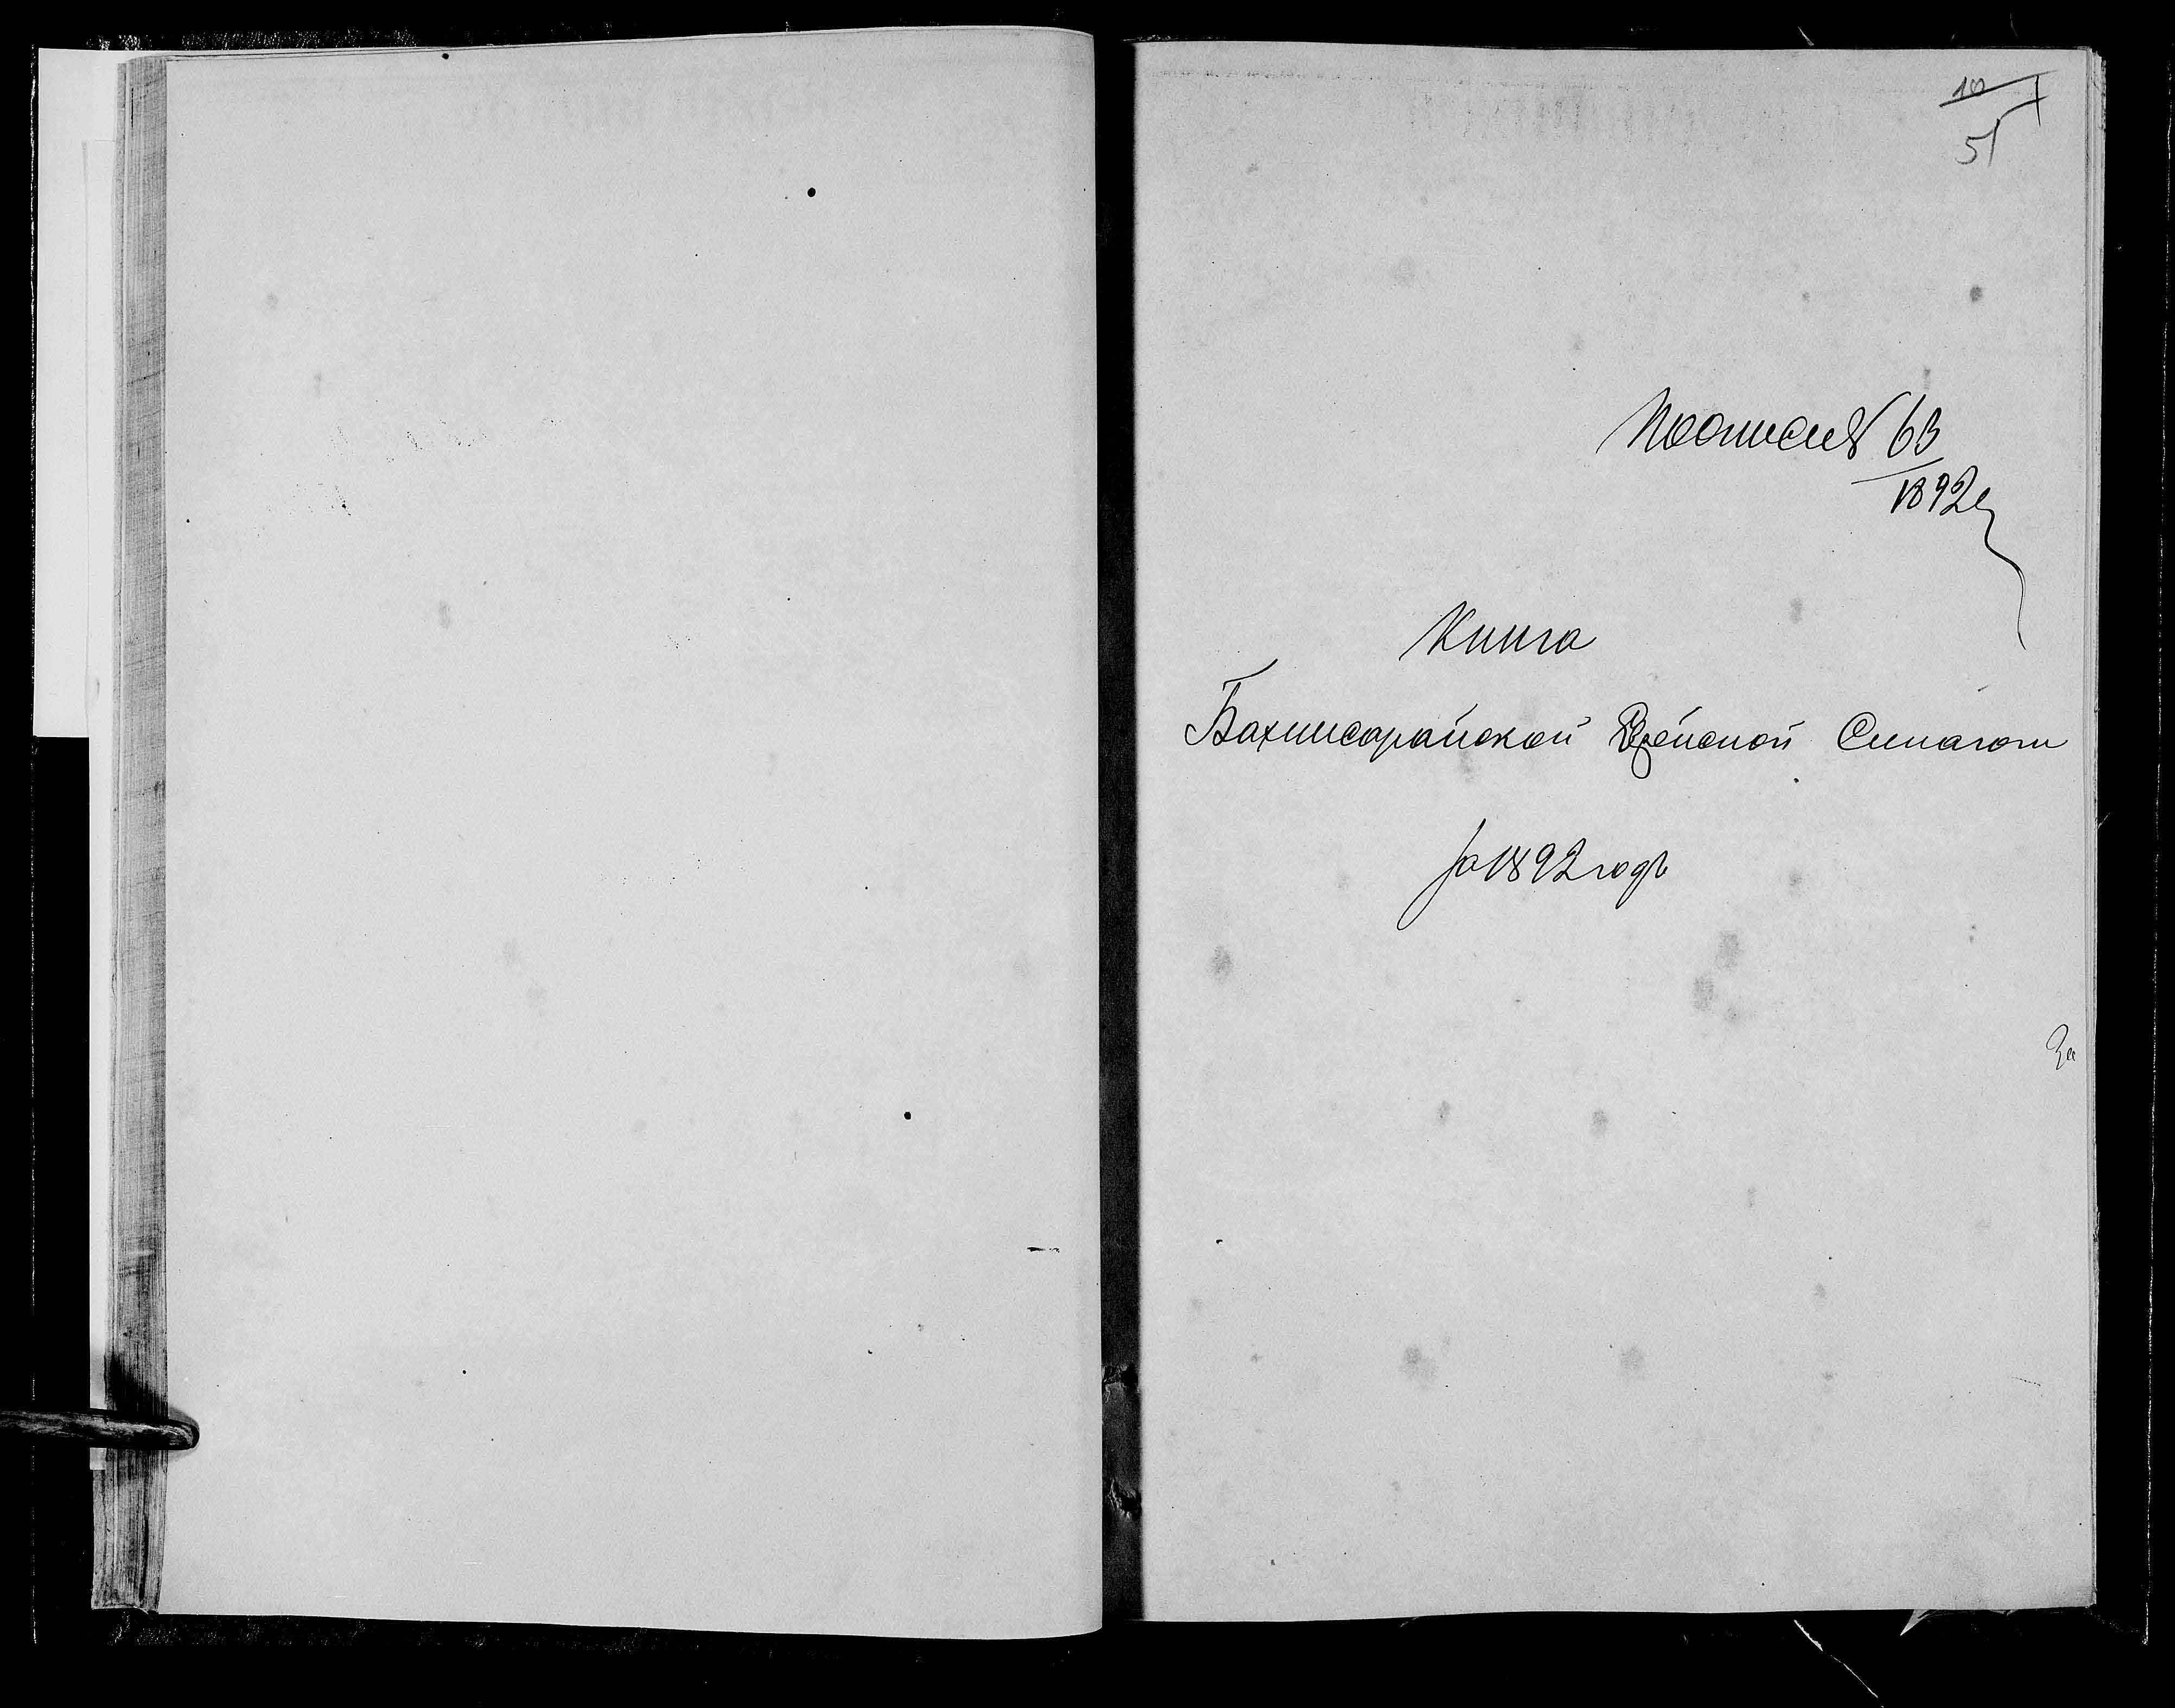 51
63
1892 г
Книга
Бахчисарайской Еврейской Синагоги
за 1892 годъ